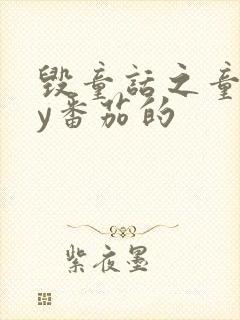 毁童话之童
y番茄的
紫夜墨